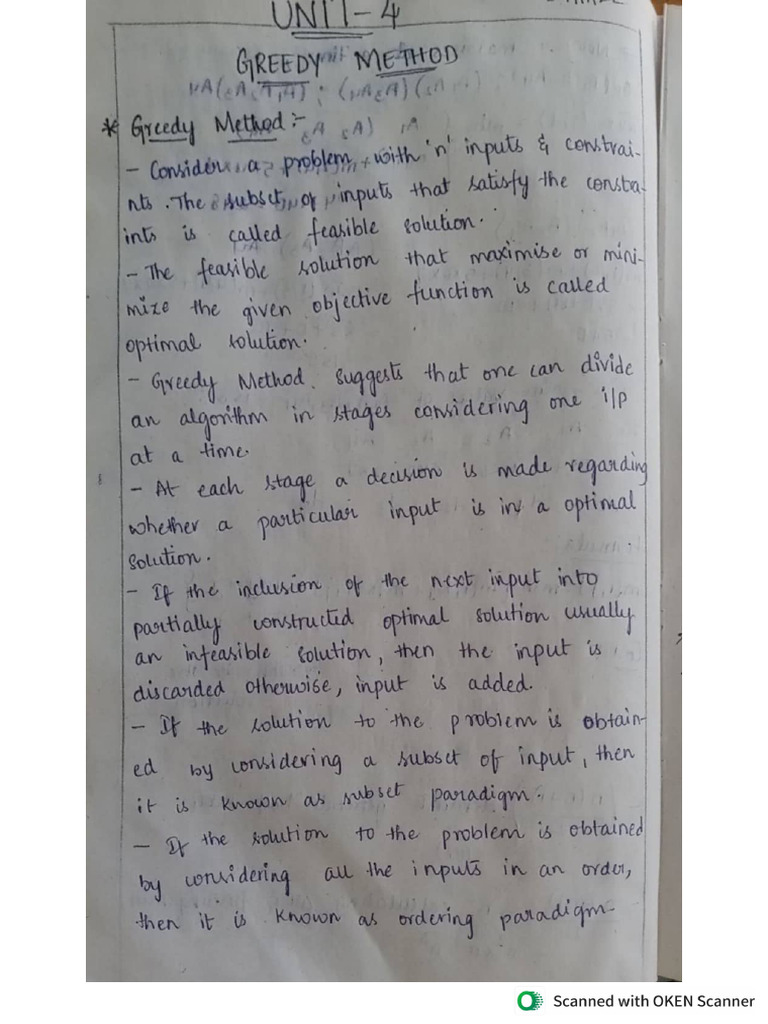 UNIT-4
GREEDY METHOD
* Greedy Method :-
- Consider a problem with 'n' inputs & constrai-
nts. The subset of inputs that satisfy the constra-
ints is called feasible solution.
- The feasible solution that maximise or mini-
mize the given objective function is called
optimal solution.
- Greedy Method suggests that one can divide
an algorithm in stages considering one i/p
at a time.
- At each stage a decision is made regarding
whether a particular input is in a optimal
solution.
- If the inclusion of the next input into
partially constructed optimal solution usually
an infeasible solution, then the input is
discarded otherwise, input is added.
- If the solution to the problem is obtain-
ed by considering a subset of input, then
it is known as subset paradigm.
- If the solution to the problem is obtained
by considering all the inputs in an order,
then it is known as ordering paradigm.
Scanned with OKEN Scanner